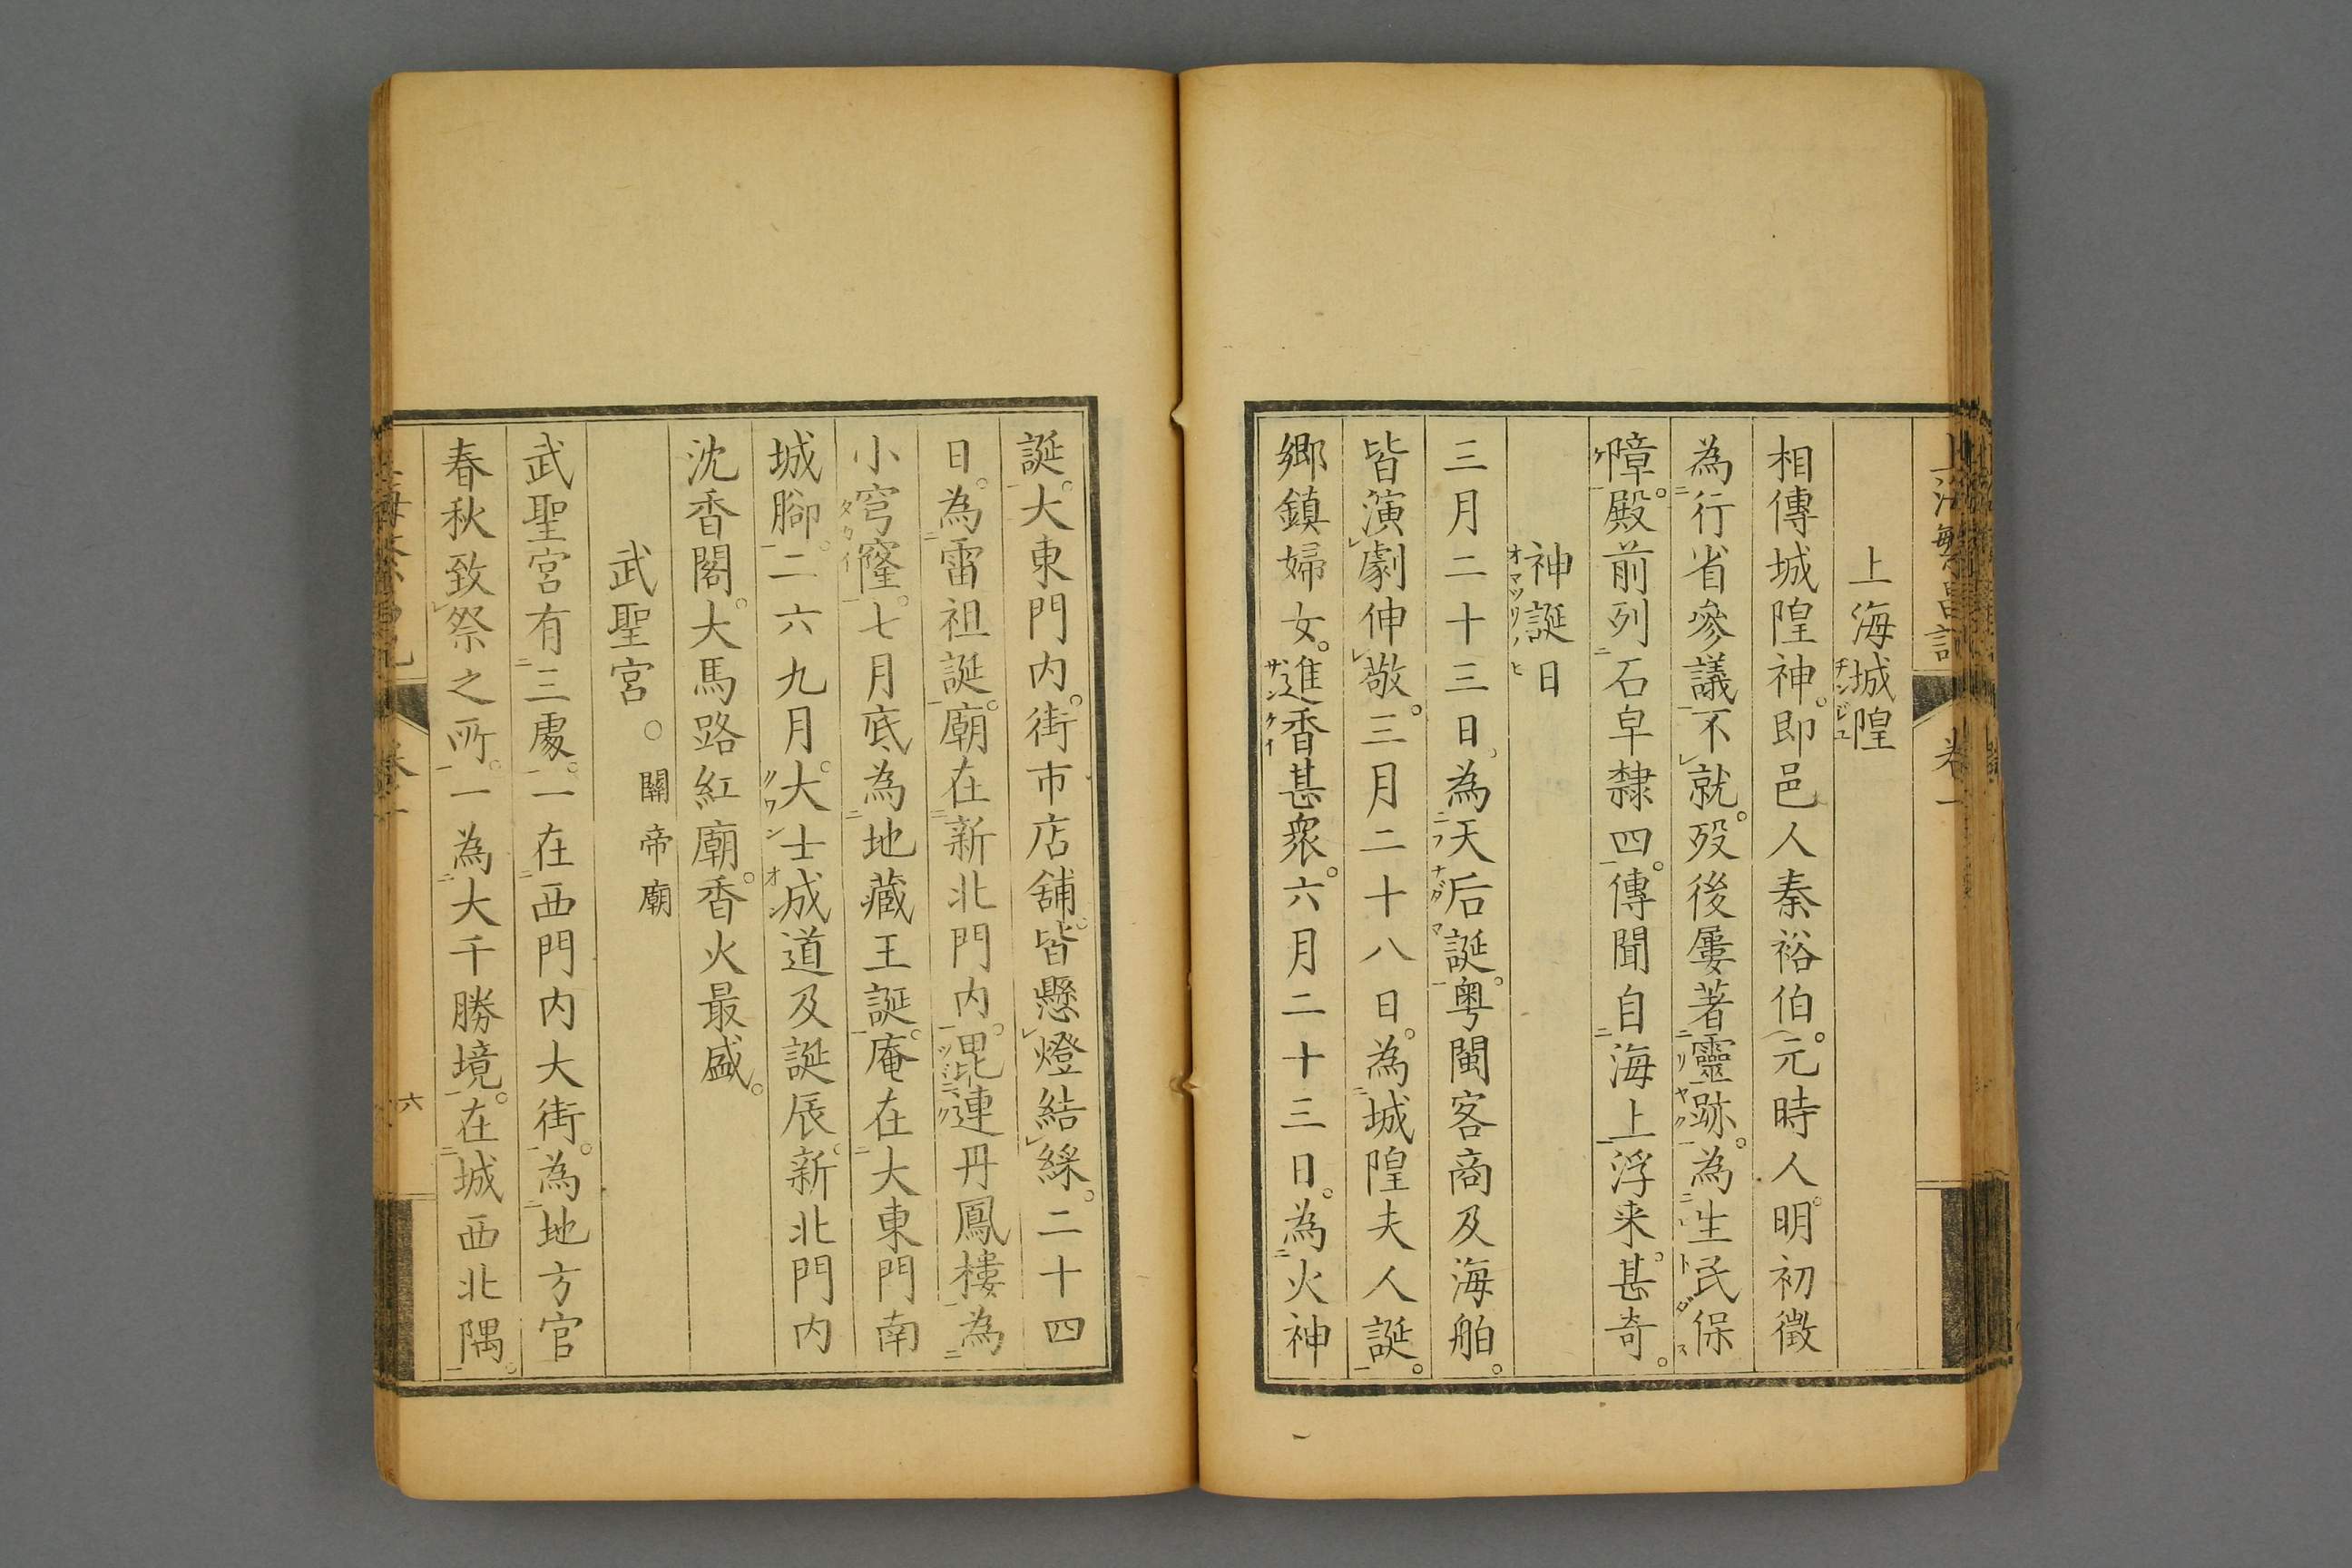 上海城隍
相傳城隍神。即邑人秦裕伯。元時人。明初徵
為行省參議不就。歿後屢著靈跡。為生民保
幛。殿前列石皁隸四。傳聞自海上浮来。甚奇。
神誕日
三月二十三日、為天后誕。粤閩客商及海舶。
皆演劇伸敬。三月二十八日。為城隍夫人誕。
鄉鎮婦女。進香甚衆。六月二十三日。為火神
誕。大東門内。街市店舖。皆懸燈結綵。二十四
日。為雷祖誕。廟在新北門内。毘連丹鳳樓。為
小穹窿。七月底為地藏王誕。庵在大東門南
城腳。二六九月。大士成道及誕辰。新北門内
沈香閣。大馬路紅廟。香火最盛。
武聖宮 ○關帝廟
武聖宮有三處。一在西門内大街。為地方官
春秋致祭之所。一為大千勝境。在城西北隅。
卷一
六